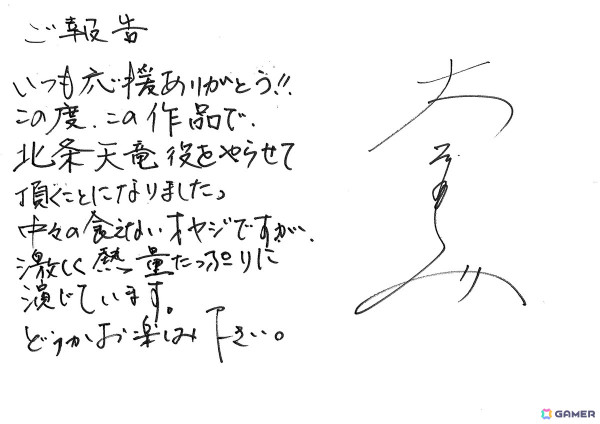 ご報告
いつも応援ありがとう!!
この度、この作品で、
北条天竜役をやらせて
頂くことになりました。
中々の食えないオヤジですが、
激しく熱量たっぷりに
演じています。
どうかお楽しみ下さい。
GAMER